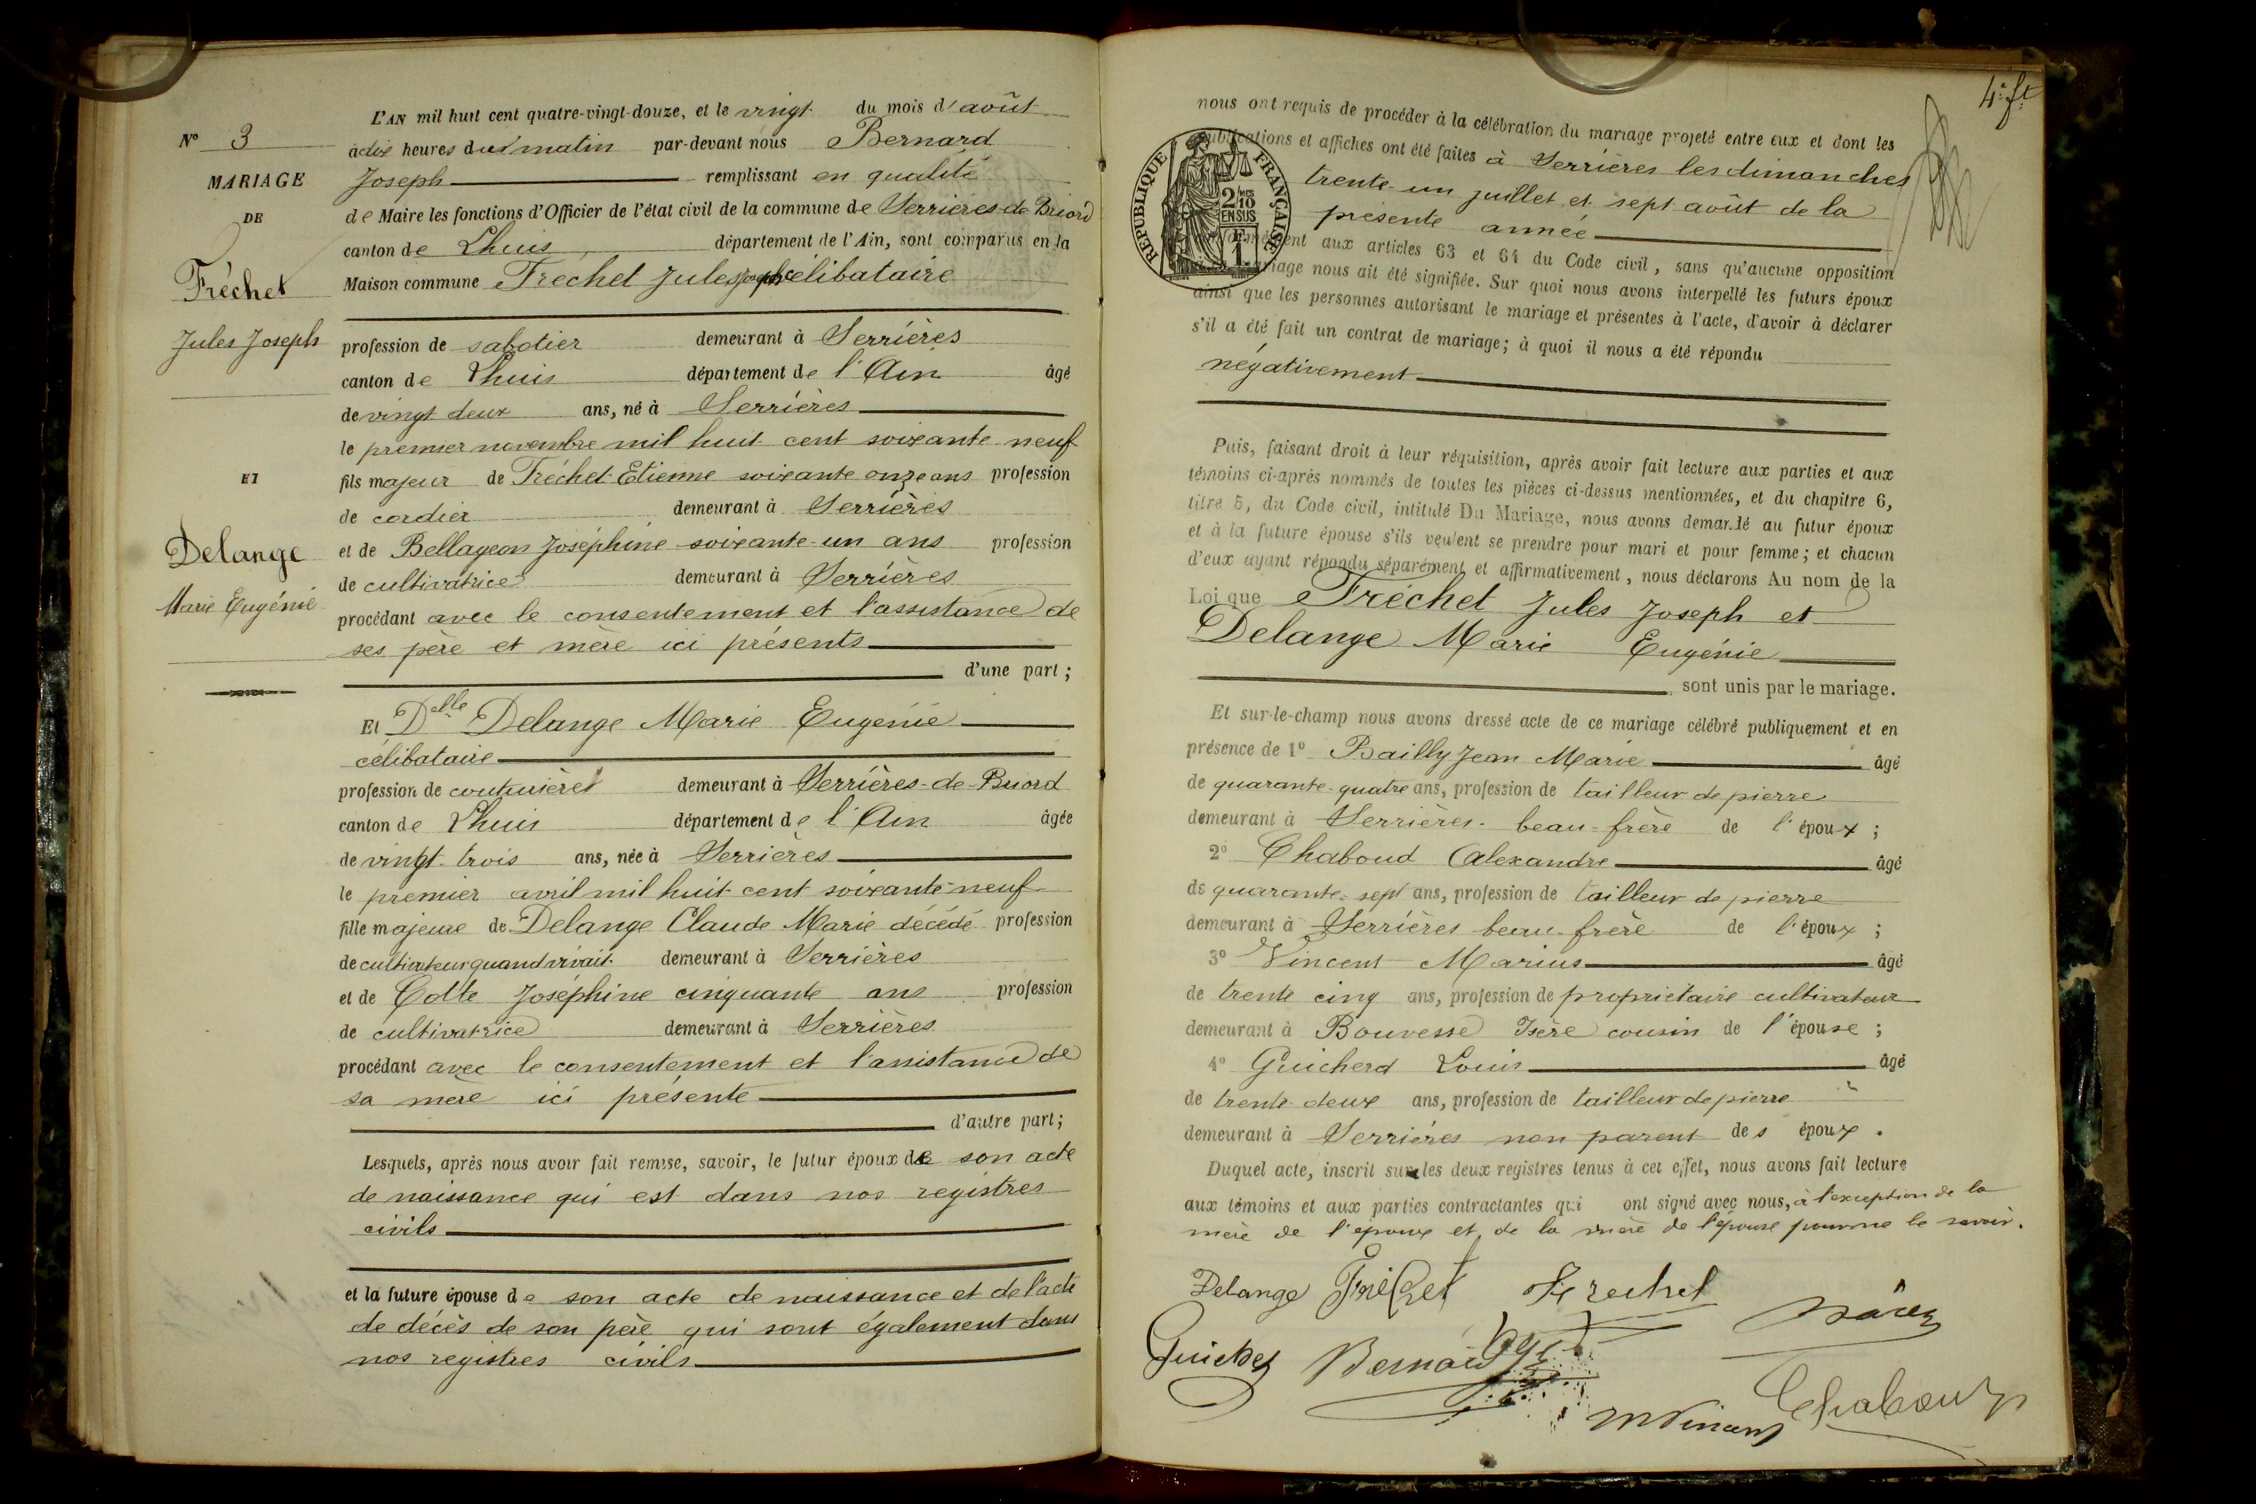 L'AN mil huit cent quatre-vingt-douze, et le vingt du mois d'août
N° 3
à dix heures du matin par-devant nous Bernard
MARIAGE
Joseph remplissant en qualité
DE
de Maire les fonctions d'Officier de l'état civil de la commune de Serrières-de-Briord
canton de Lhuis département de l'Ain, sont comparus en la
Fréchet
Maison commune Fréchet Jules Joseph célibataire
Jules Joseph
profession de sabotier demeurant à Serrières
canton de Lhuis département de l'Ain âgé
de vingt deux ans, né à Serrières
le premier novembre mil huit cent soixante neuf
ET
fils majeur de Fréchet Etienne soixante onze ans profession
de cordier demeurant à Serrières
Delange
et de Bellageon Joséphine soixante-un ans profession
de cultivatrice demeurant à Serrières
Marie Eugénie
procédant avec le consentement et l'assistance de
ses père et mère ici présents
d'une part ;
Et Delle Delange Marie Eugénie
célibataire
profession de couturière demeurant à Serrières-de-Briord
canton de Lhuis département de l'Ain âgée
de vingt-trois ans, née à Serrières
le premier avril mil huit cent soixante-neuf
fille majeure de Delange Claude Marie décédé profession
de cultivateur quand vivait demeurant à Serrières
et de Cotte Joséphine cinquante ans profession
de cultivatrice demeurant à Serrières
procédant avec le consentement et l'assistance de
sa mère ici présente
d'autre part ;
Lesquels, après nous avoir fait remise, savoir, le futur époux de son acte
de naissance qui est dans nos registres
civils
et la future épouse de son acte de naissance et de l'acte
de décès de son père qui sont également dans
nos registres civils
4e ft
nous ont requis de procéder à la célébration du mariage projeté entre eux et dont les
publications et affiches ont été faites à Serrières les dimanches
trente-un juillet et sept août de la
présente année
RÉPUBLIQUE FRANÇAISE
2/10 EN SUS
1F
aux articles 63 et 64 du Code civil, sans qu'aucune opposition
mariage nous ait été signifiée. Sur quoi nous avons interpellé les futurs époux
ainsi que les personnes autorisant le mariage et présentes à l'acte, d'avoir à déclarer
s'il a été fait un contrat de mariage ; à quoi il nous a été répondu
négativement
Puis, faisant droit à leur réquisition, après avoir fait lecture aux parties et aux
témoins ci-après nommés de toutes les pièces ci-dessus mentionnées, et du chapitre 6,
titre 5, du Code civil, intitulé Du Mariage, nous avons demandé au futur époux
et à la future épouse s'ils veulent se prendre pour mari et pour femme ; et chacun
d'eux ayant répondu séparément et affirmativement, nous déclarons Au nom de la
Loi que Fréchet Jules Joseph et
Delange Marie Eugénie
sont unis par le mariage.
Et sur-le-champ nous avons dressé acte de ce mariage célébré publiquement et en
présence de 1° Bailly Jean Marie âgé
de quarante-quatre ans, profession de tailleur de pierre
demeurant à Serrières beau-frère de l'époux ;
2° Chaboud Alexandre âgé
de quarante-sept ans, profession de tailleur de pierre
demeurant à Serrières beau-frère de l'époux ;
3° Vincent Marius âgé
de trente cinq ans, profession de propriétaire cultivateur
demeurant à Bouvesse Isère cousin de l'épouse ;
4° Guicherd Louis âgé
de trente-deux ans, profession de tailleur de pierre
demeurant à Serrières non parent des époux.
Duquel acte, inscrit sur les deux registres tenus à cet effet, nous avons fait lecture
aux témoins et aux parties contractantes qui ont signé avec nous, à l'exception de la
mère de l'époux et de la mère de l'épouse pour ne le savoir.
Delange Fréchet Frechet
Bernard
M Vincent Chaboud